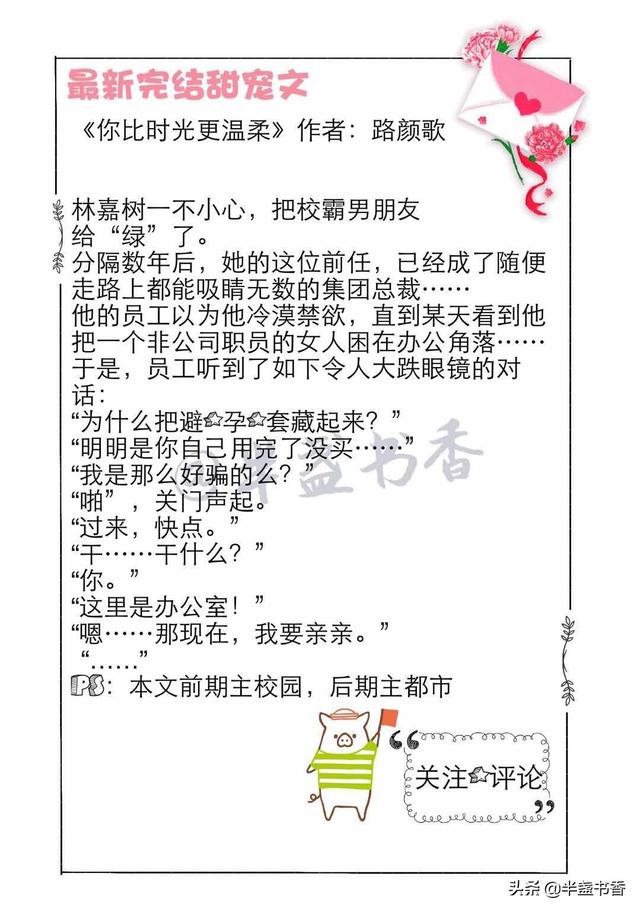 最新完结甜宠文
《你比时光更温柔》作者：路颜歌
林嘉树一不小心，把校霸男朋友
给“绿”了。
分隔数年后，她的这位前任，已经成了随便
走路上都能吸睛无数的集团总裁……
他的员工以为他冷漠禁欲，直到某天看到他
把一个非公司职员的女人困在办公角落……
于是，员工听到了如下令人大跌眼镜的对
话：
“为什么把避★孕★套藏起来？”
“明明是你自己用完了没买……”
“我是那么好骗的么？”
“啪”，关门声起。
“过来，快点。”
“干……干什么？”
“你。”
“这里是办公室！”
“嗯……那现在，我要亲亲。”
“……”
PS：本文前期主校园，后期主都市
“关注★评论”
@半盏书香
头条 @半盏书香